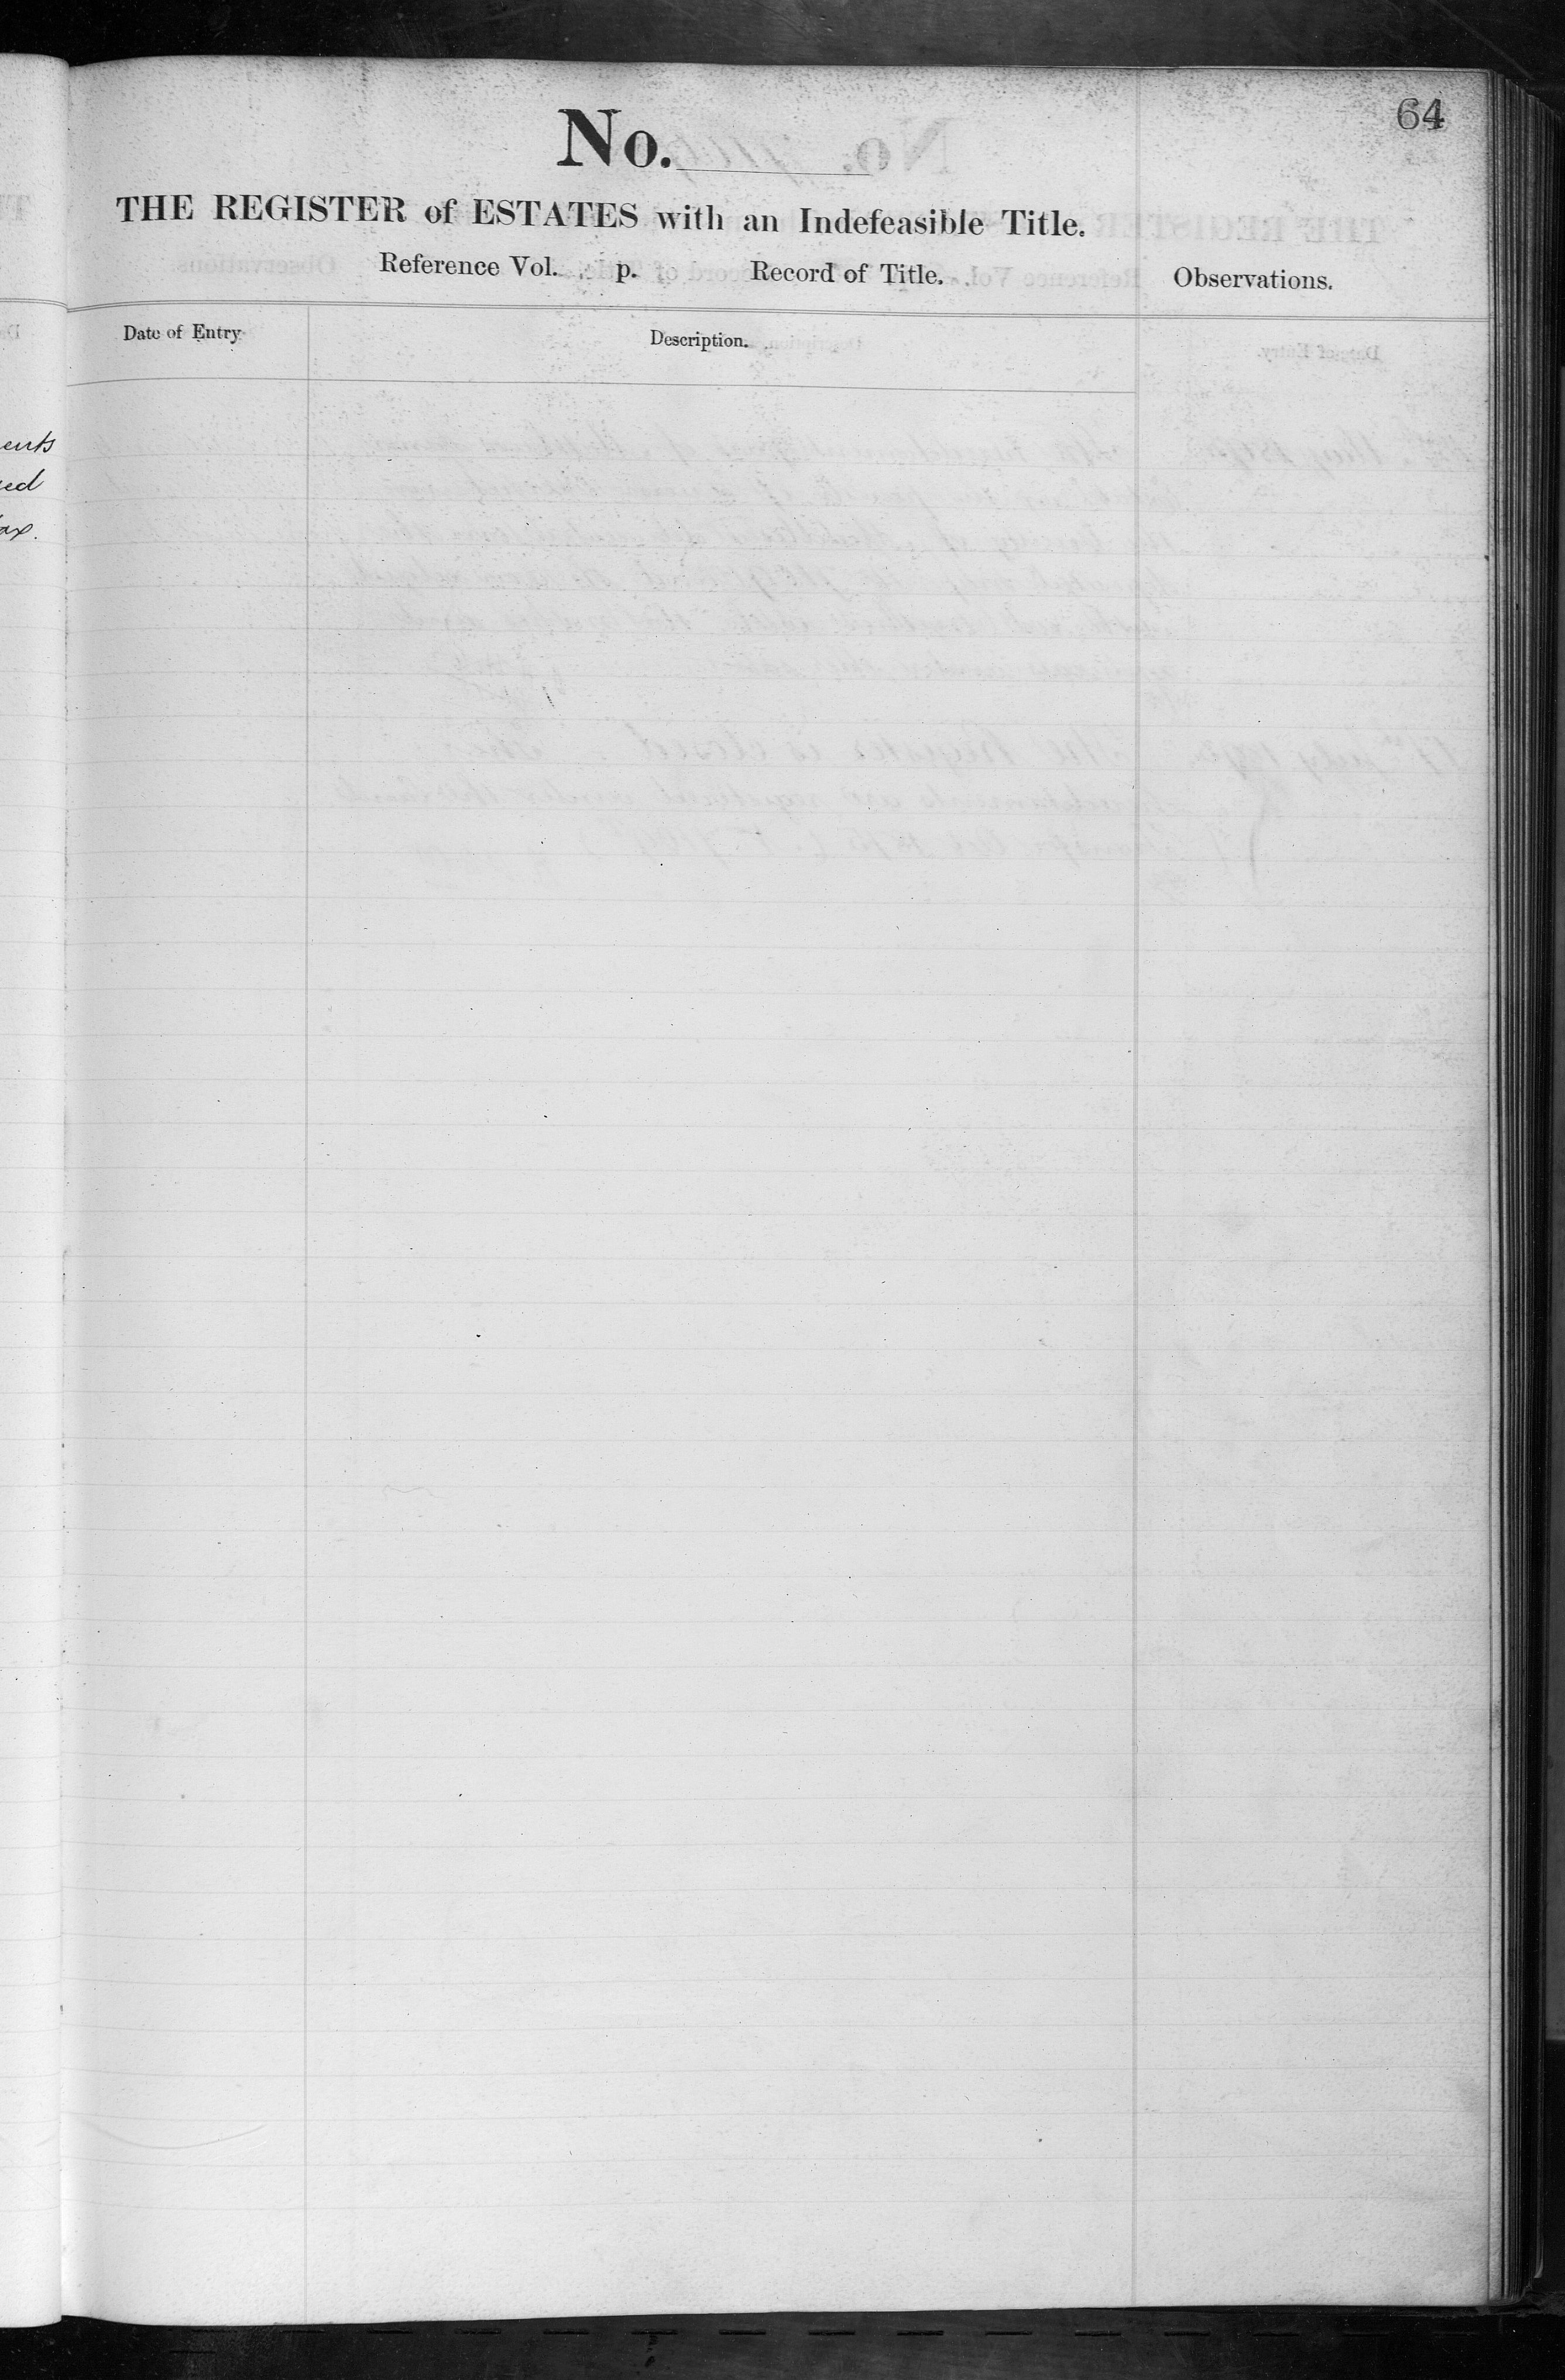 64
No.
THE REGISTER of ESTATES with an Indefeasible Title.
Reference Vol. p. Record of Title.
Observations.
Date of Entry
Description.
ents
ed
ax.